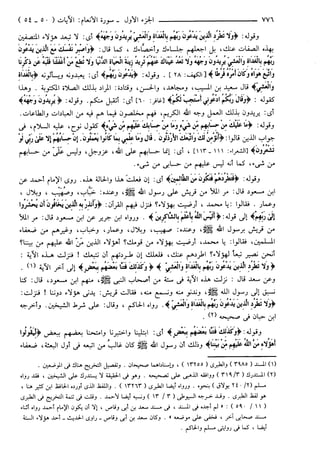 ٧٧٦ الجزء الأول ـ سورة الأنعام: الآيات (٥٠ ـ ٥٤)
وقوله: ﴿ولا تطرد الذين يدعون ربهم بالغداة والعشي يريدون وجهه﴾ أي: لا تبعد هؤلاء المتصفين
بهذه الصفات عنك، بل اجعلهم جلساءك وأخصاءك، كما قال: ﴿واصبر نفسك مع الذين يدعون
ربهم بالغداة والعشي يريدون وجهه ولا تعد عيناك عنهم تريد زينة الحياة الدنيا ولا تطع من أغفلنا قلبه عن ذكرنا
واتبع هواه وكان أمره فرطا﴾ [الكهف: ٢٨]. وقوله: ﴿يدعون ربهم﴾ أي: يعبدونه ويسألونه ﴿بالغداة
والعشي﴾ قال سعيد بن المسيب، ومجاهد، والحسن، وقتادة: المراد بذلك الصلاة المكتوبة. وهذا
كقوله: ﴿وقال ربكم ادعوني أستجب لكم﴾ [غافر: ٦٠] أي: أتقبل منكم. وقوله: ﴿يريدون وجهه﴾
أي: يريدون بذلك العمل وجه الله الكريم، فهم مخلصون فيما هم فيه من العبادات والطاعات.
وقوله: ﴿ما عليك من حسابهم من شيء وما من حسابك عليهم من شيء﴾ كقول نوح، عليه السلام، في
جواب الذين قالوا: ﴿أنؤمن لك واتبعك الأرذلون﴾ قال: ﴿وما علمي بما كانوا يعملون إن حسابهم إلا على ربي لو
تشعرون﴾ [الشعراء: ١١١ ـ ١١٣]، أي: إنما حسابهم على الله، عز وجل، وليس علي من حسابهم
من شيء، كما أنه ليس عليهم من حسابي من شيء.
وقوله: ﴿فتطردهم فتكون من الظالمين﴾ أي: إن فعلت هذا والحالة هذه. روى الإمام أحمد عن
ابن مسعود قال: مر الملأ من قريش على رسول الله ﷺ، وعنده: خباب، وصهيب، وبلال،
وعمار. فقالوا: يا محمد، أرضيت بهؤلاء؟ فنزل فيهم القرآن: ﴿وأنذر به الذين يخافون أن يحشروا
إلى ربهم﴾ إلى قوله: ﴿أليس الله بأعلم بالشاكرين﴾. ورواه ابن جرير عن ابن مسعود قال: مر الملأ
من قريش برسول الله ﷺ، وعنده: صهيب، وبلال، وعمار، وخباب، وغيرهم من ضعفاء
المسلمين، فقالوا: يا محمد، أرضيت بهؤلاء من قومك؟ أهؤلاء الذين من الله عليهم من بيننا؟
أنحن نصير تبعا لهؤلاء؟ اطردهم عنك، فلعلك إن طردتهم أن نتبعك! فنزلت هذه الآية:
﴿ولا تطرد الذين يدعون ربهم بالغداة والعشي﴾ ﴿وكذلك فتنا بعضهم ببعض﴾ إلى آخر الآية (١).
وعن سعد قال: نزلت هذه الآية في ستة من أصحاب النبي ﷺ، منهم ابن مسعود، قال: كنا
نسبق إلى رسول الله ﷺ، وندنو منه ونسمع منه، فقالت قريش: يدني هؤلاء دوننا! فنزلت:
﴿ولا تطرد الذين يدعون ربهم بالغداة والعشي﴾. رواه الحاكم، وقال: على شرط الشيخين. وأخرجه
ابن حبان في صحيحه (٢).
وقوله: ﴿وكذلك فتنا بعضهم ببعض﴾ أي: ابتلينا واختبرنا وامتحنا بعضهم ببعض ﴿ليقولوا
أهؤلاء من الله عليهم من بيننا﴾ وذلك أن رسول الله ﷺ كان غالب من اتبعه في أول البعثة، ضعفاء
(١) المسند (٣٩٨٥) والطبري (١٣٢٥٥)، وإسنادهما صحيحان. وتفصيل التخريج هناك في الموضعين.
(٢) المستدرك (٣/٣١٩) ووافقه الذهبي على تصحيحه. وهو في الحقيقة لا يستدرك على الشيخين، فقد رواه
مسلم (٢/٢٤٠ بولاق) بنحوه. ورواه أيضا الطبري (١٣٢٦٣). واللفظ الذي أورده الحافظ ابن كثير هنا،
هو لفظ الطبري. وقد خرجه السيوطي (٣/١٣) ونسبه أيضا لأحمد.